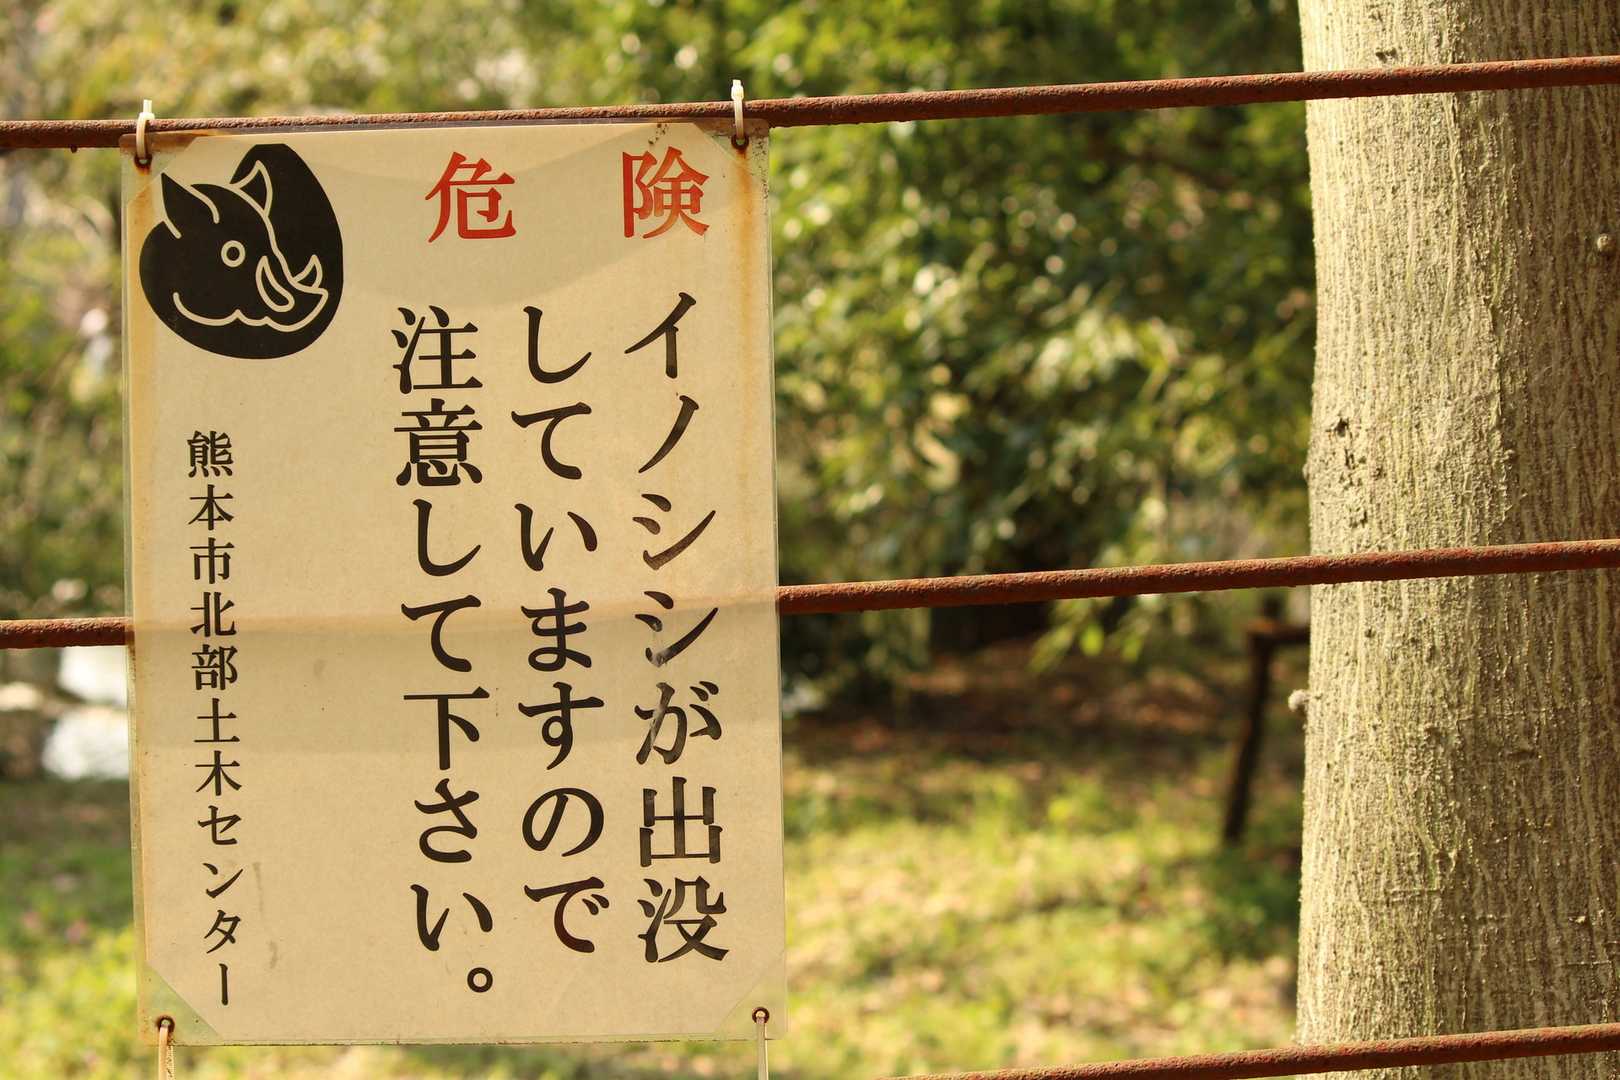 危険
イノシシが出没
していますので
注意して下さい。
熊本市北部土木センター